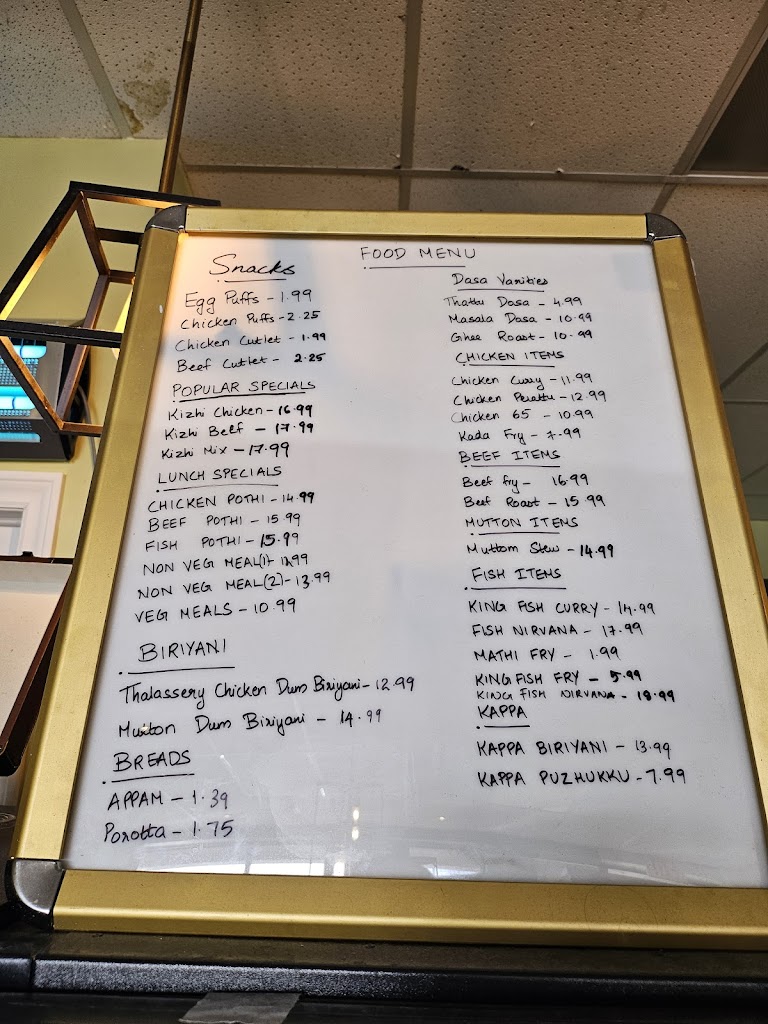 FOOD MENU
Snacks
Egg Puffs - 1.99
Chicken Puffs - 2.25
Chicken Cutlet - 1.99
Beef Cutlet - 2.25
POPULAR SPECIALS
Kizhi Chicken - 16.99
Kizhi Beef - 17.99
Kizhi Mix - 17.99
LUNCH SPECIALS
CHICKEN POTHI - 14.99
BEEF POTHI - 15.99
FISH POTHI - 15.99
NON VEG MEAL(1)-
NON VEG MEAL(2)- 13.99
VEG MEALS - 10.99
BIRIYANI
Thalassery Chicken Dum Biriyani - 12.99
Mutton Dum Biriyani - 14.99
BREADS
APPAM - 1.39
Porotta - 1.75
Dosa Varities
Thattu Dosa - 4.99
Masala Dosa - 10.99
Ghee Roast - 10.99
CHICKEN ITEMS
Chicken Curry - 11.99
Chicken Perattu - 12.99
Chicken 65 - 10.99
Kada Fry - 7.99
BEEF ITEMS
Beef fry - 16.99
Beef Roast - 15.99
MUTTON ITEMS
Muttom Stew - 14.99
FISH ITEMS
KING FISH CURRY - 14.99
FISH NIRVANA - 17.99
MATHI FRY - 1.99
KING FISH FRY - 5.99
KING FISH NIRVANA - 18.99
KAPPA
KAPPA BIRIYANI - 13.99
KAPPA PUZHUKKU - 7.99